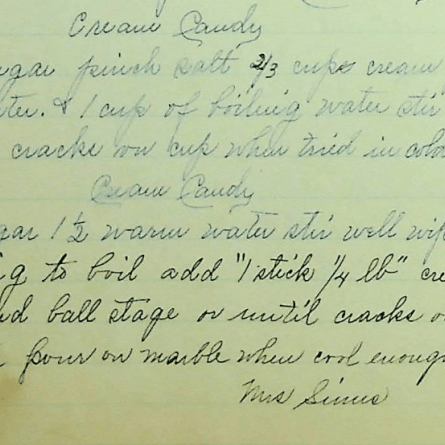 Cream Candy
ugar pinch salt 2/3 cups cream
ter. & 1 cup of boiling water stir
cracks on cup when tried in cold
Cream Candy
gar 1 1/2 warm water stir well wip
g to boil add "1 stick 1/4 lb" cre
d ball stage or until cracks o
pour on marble when cool enoug
Mrs Simms